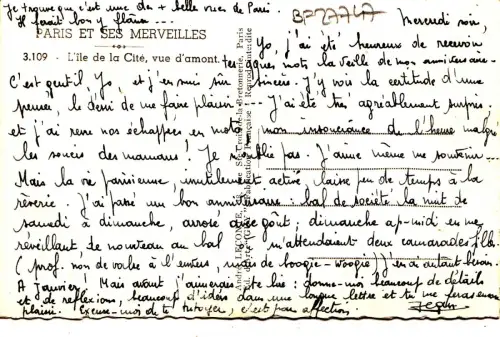 Je trouve que c'est une des + belle vues de Paris.
Il ferait bon y flâner ---
BF27747
PARIS ET SES MERVEILLES
3.109 - L'île de la Cité, vue d'amont.
Mercredi soir,
Yo, j'ai été heureux de recevoir
quelques mots la veille de mon anniversaire.
C'est gentil Yo, et j'en suis sûr sincère. J'y vois la certitude d'une
pensée, le désir de me faire plaisir --- J'ai été très agréablement surpris.
et j'ai revu nos échappées en moto, mon insouciance de l'heure malgré
les soucis des mamans! Je n'oublie pas. J'aime même me souvenir --
Mais la vie parisienne, inutilement active, laisse peu de temps à la
rêverie. J'ai passé un bon anniversaire: bal de société la nuit de
samedi à dimanche, arrosé avec goût. dimanche ap-midi en me
réveillant, de nouveau au bal m'attendaient deux camarades filles
(prof. non de valse à l'envers, mais de boogie-woogie)) j'en ai autant besoin.
A Janvier. Mais avant j'aimerais te lire: donne-moi beaucoup de détails
et de réflexions, beaucoup d'idées dans une longue lettre et tu me feras grand
plaisir. Excuse-moi de te tutoyer, c'est par affection.